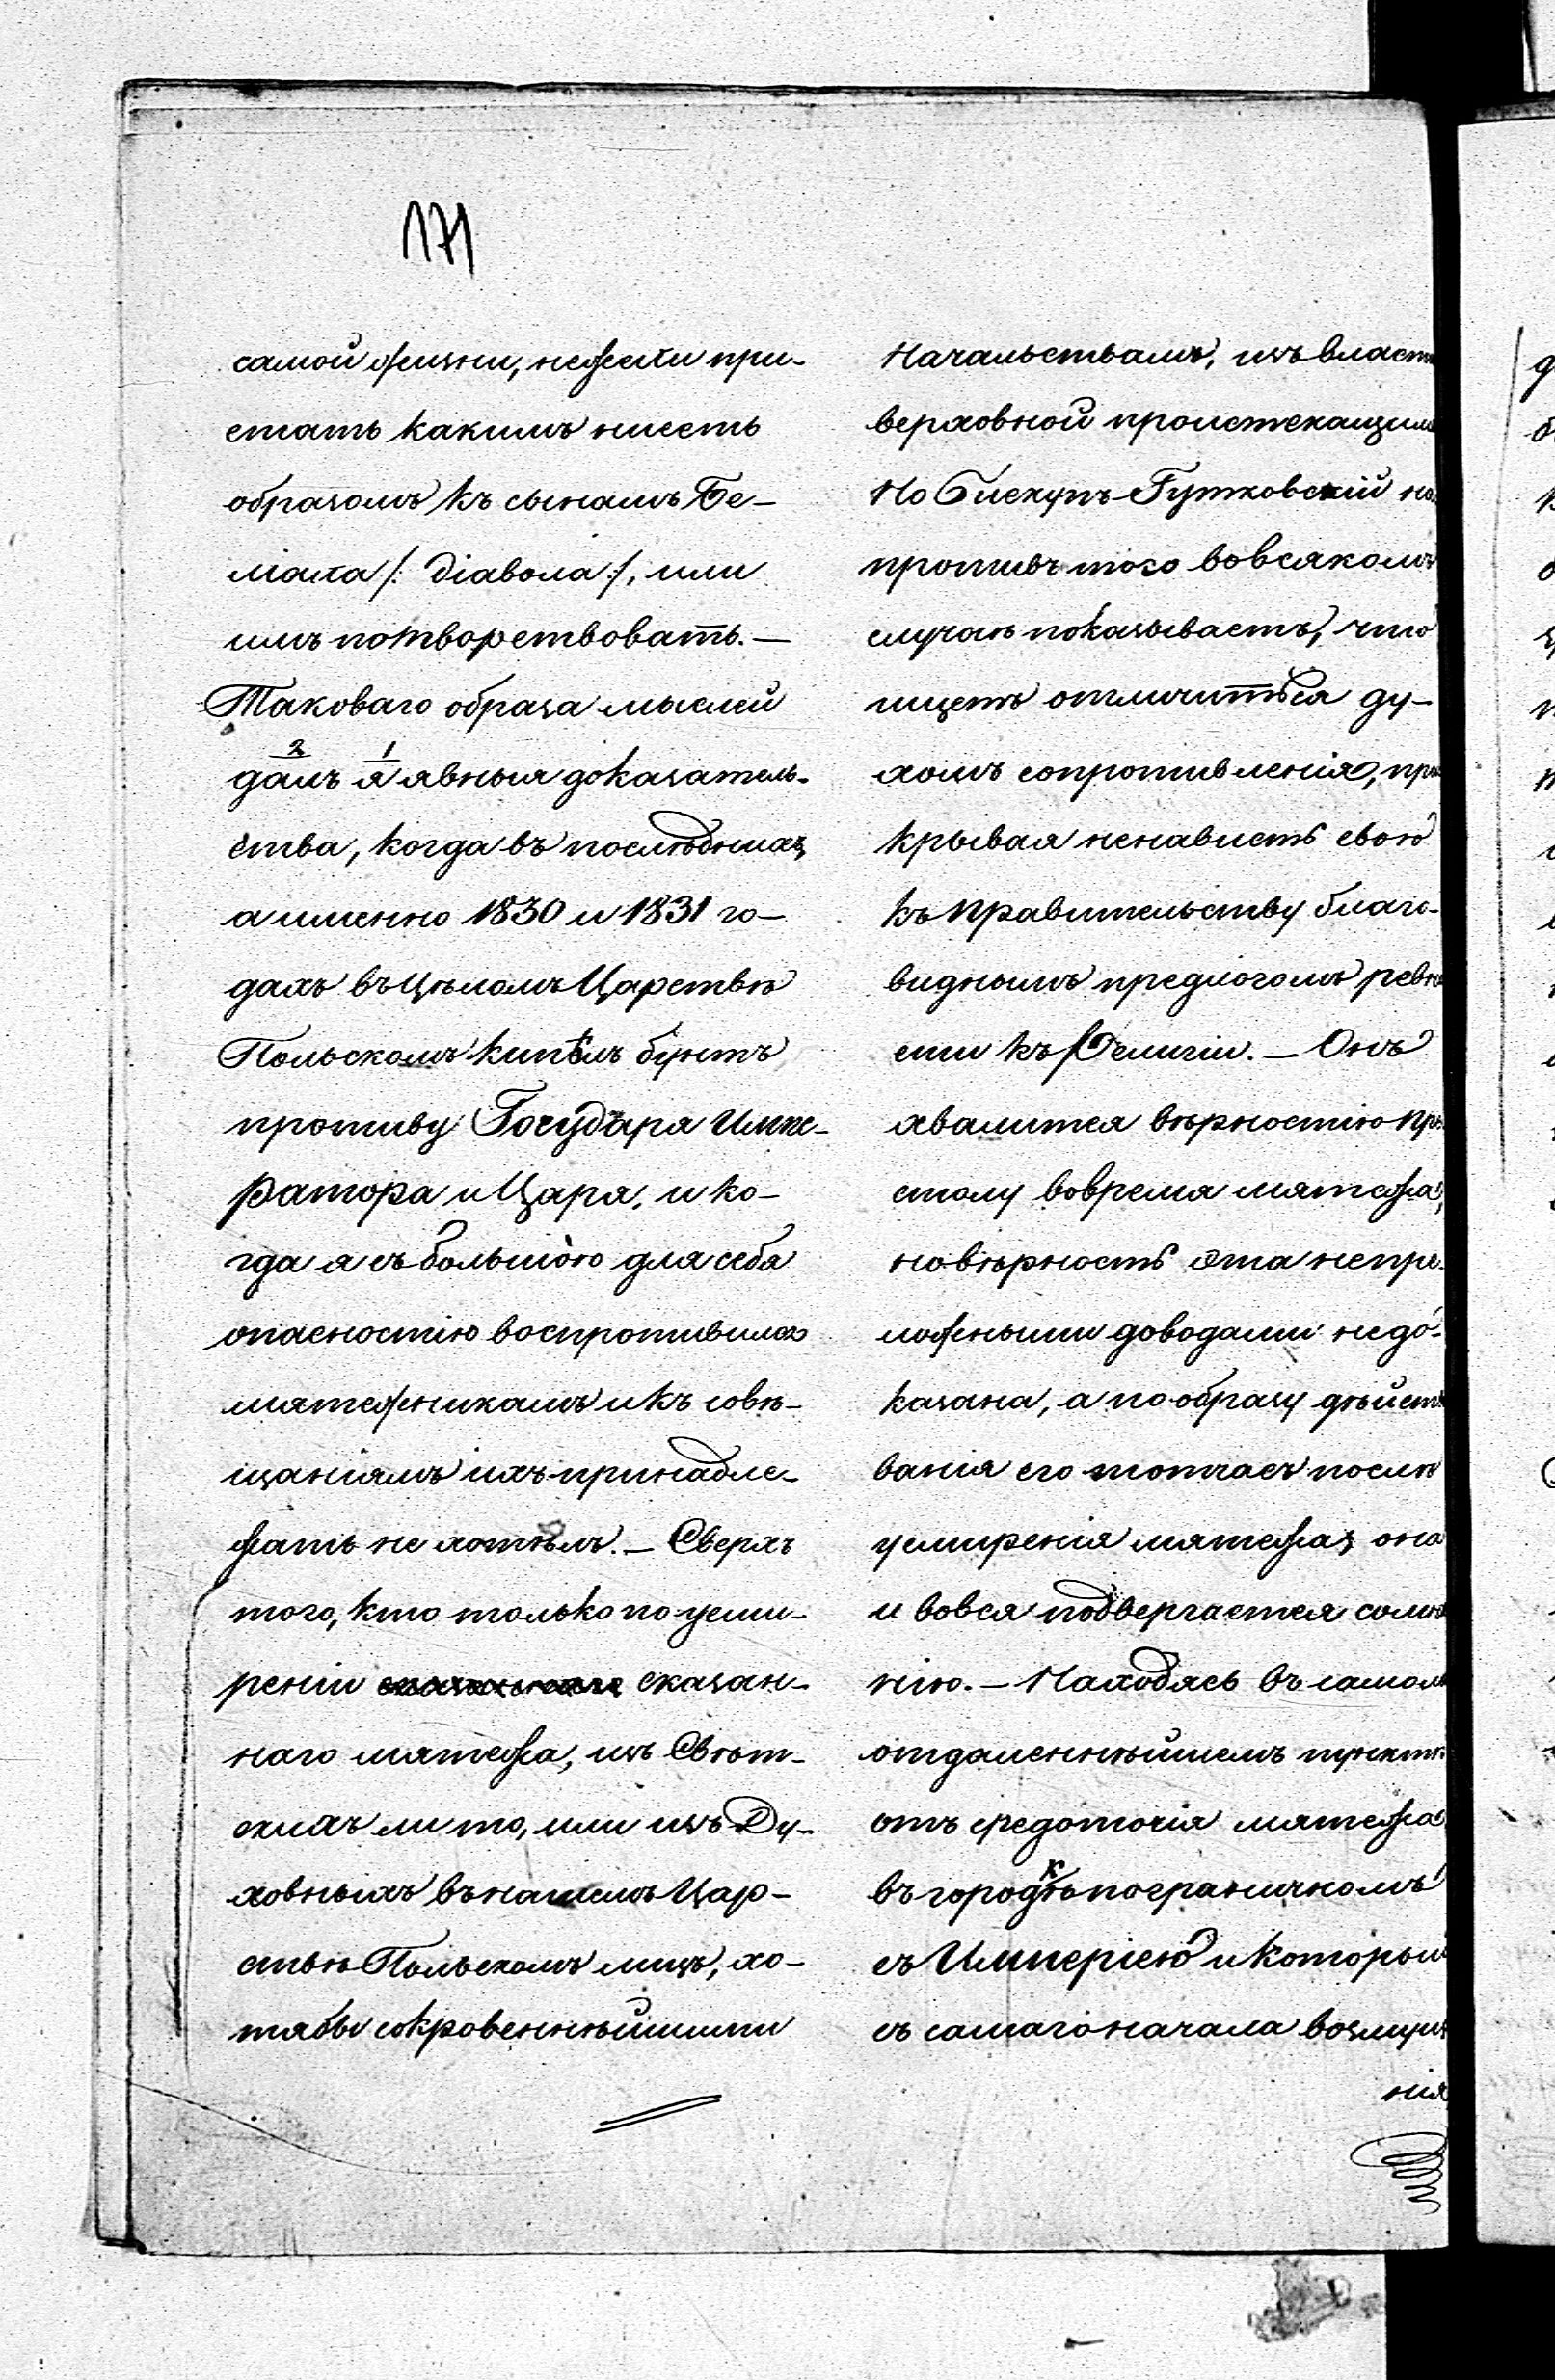 171
самой жизни, нежели при-
стать какимъ ниесть
образомъ къ сынамъ Бе-
ліала /: діавола :/, или
имъ потворствовать. —
Таковаго образа мыслей
2 1
далъ я явныя доказатель-
ства, когда въ послѣднихъ,
а именно 1830 и 1831 го-
дахъ въ цѣломъ Царствѣ
Польскомъ кипѣлъ бунтъ
противу Государя Импе-
ратора и Царя, и ко-
гда я съ большою для себя
опасностію воспротивился
мятежникамъ и къ совѣ-
щаніямъ ихъ принадле-
жать не хотѣлъ. — Сверхъ
того, кто только по усми-
реніи сказан-
наго мятежа, изъ Свѣт-
скихъ ли то, или изъ Ду-
ховныхъ въ нашемъ Цар-
ствѣ Польскомъ лицъ, хо-
тябы сокровеннѣйшими
Начальствамъ, изъ власти
верховной проистекающимъ
Но Бискупъ Гутковскій на-
противъ того во всякомъ
случаѣ показываетъ, что
ищетъ отличиться ду-
хомъ сопротивленія, при
крывая ненависть свою
къ правительству благо-
виднымъ предлогомъ ревно
сти къ Религіи. — Онъ
хвалится вѣрностію пре
столу вовремя мятежа,
но вѣрность эта непре-
ложными доводами недо-
казана, а по образу дѣйст
ванія его тотчасъ послѣ
усмиренія мятежа, она
и вовся подвергается сомнѣ
нію. — Находясь въ самомъ
отдаленнѣйшемъ пунктѣ
отъ средоточія мятежа
въ городкѣ пограничномъ
съ Имперіею и который
съ самаго начала возмуще
нія